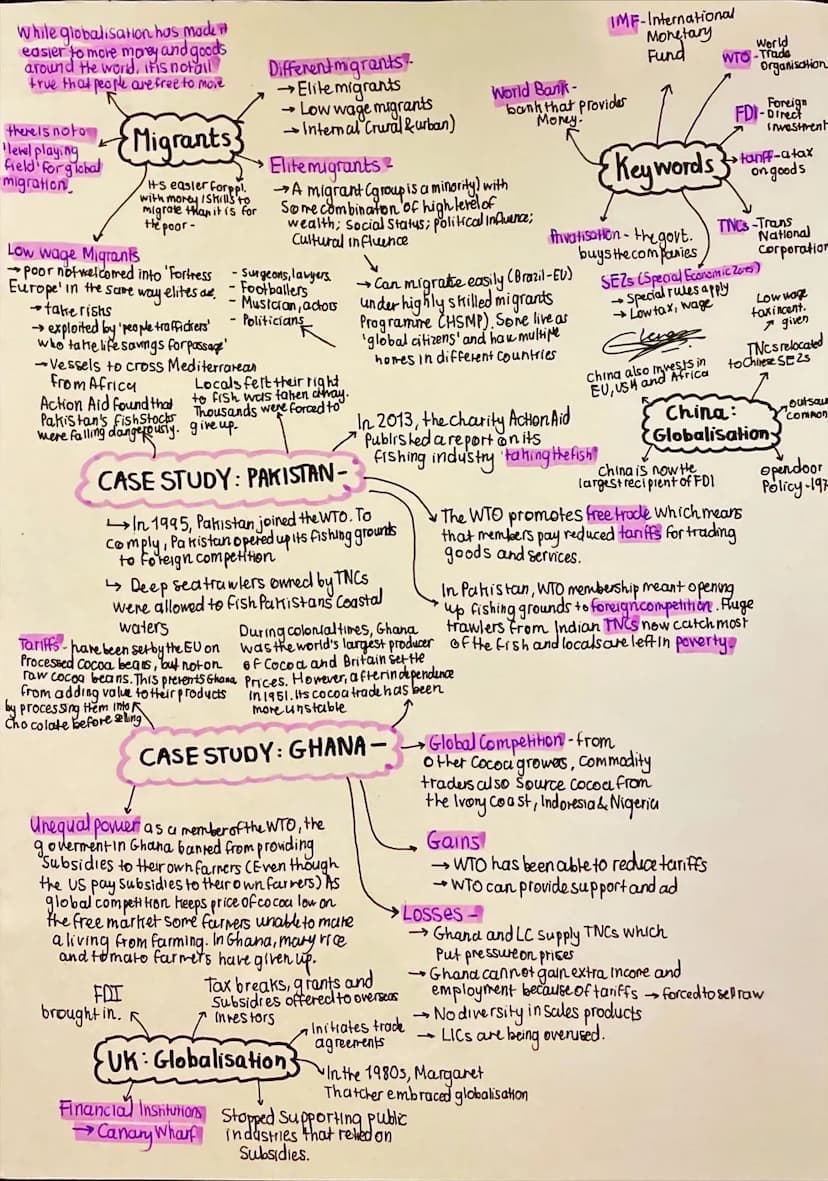 While globalisation has made it
easier to more money and goods
around the word, it is not all
true that people are free to move
there is not a
'level playing
field' for global
migration.
Migrants
It's easier for ppl.
with money/skills to
migrate than it is for
the poor -
Different migrants -
→ Elite migrants
→ Low wage migrants
→ Internal (rural & urban)
Elite migrants -
→ A migrant (group is a minority) with
some combination of high level of
wealth; social status; political influence;
Cultural influence
→ Can migrate easily (Brazil-EU)
under highly skilled migrants
Programme (HSMP). Some live as
'global citizens' and have multiple
homes in different countries
- Surgeons, lawyers
- Footballers
- Musician, actors
- Politicians
Low wage Migrants
→ poor not welcomed into 'Fortress
Europe' in the same way elites are.
→ take risks
→ exploited by 'people traffickers'
who take life savings for passage'
→ Vessels to cross Mediterranean
from Africa
IMF - International
Monetary
Fund
World Bank -
bank that provides
Money.
WTO - World
Trade
Organisation
FDI - Foreign
Direct
Investment
Keywords
tariff - a tax
on goods
TNCs - Trans
National
Corporation
Privatisation - the govt.
buys the companies
SEZs (Special Economic Zones)
→ Special rules apply
→ Low tax, wage
Low wage
tax incent.
given
TNCs relocated
to Chinese SEZs
China also invests in
EU, USA and Africa
China:
Globalisation
common
China is now the
largest recipient of FDI
open door
Policy - 197
Action Aid found that
Pakistan's fish stocks
were falling dangerously.
Locals felt their right
to fish was taken away.
Thousands were forced to
give up.
In 2013, the charity ActionAid
Published a report on its
fishing industry 'taking the fish'
CASE STUDY: PAKISTAN -
↳ In 1995, Pakistan joined the WTO. To
comply, Pakistan opened up its fishing grounds
to foreign competition
↳ Deep sea trawlers owned by TNCs
were allowed to fish Pakistans Coastal
waters
The WTO promotes free trade which means
that members pay reduced tariffs for trading
goods and services.
In Pakistan, WTO membership meant opening
up fishing grounds to foreign competition. Huge
trawlers from Indian TNCs now catch most
of the fish and locals are left in poverty.
Tariffs - have been set by the EU on
Processed cocoa beans, but not on
raw cocoa beans. This prevents Ghana
from adding value to their products
by processing them into
Chocolate before selling
During colonial times, Ghana
was the world's largest producer
of Cocoa and Britain set the
Prices. However, after independence
in 1951. Its cocoa trade has been
more unstable
CASE STUDY: GHANA -
Global Competition - from
other Cocoa growers, Commodity
traders also Source cocoa from
the Ivory Coast, Indonesia & Nigeria
Unequal power as a member of the WTO, the
goverment in Ghana banned from providing
Subsidies to their own farmers (Even though
the US pay subsidies to their own farmers) As
global competition keeps price of cocoa low on
the free market some farmers unable to make
a living from farming. In Ghana, many rice
and tomato farmers have given up.
Gains
→ WTO has been able to reduce tariffs
→ WTO can provide support and aid
Losses -
→ Ghana and LC supply TNCs which
Put pressure on prices
→ Ghana cannot gain extra income and
employment because of tariffs → forced to sell raw
→ No diversity in sales products
→ LICs are being overused.
FDI
brought in.
Tax breaks, grants and
Subsidies offered to overseas
investors
Initiates trade
agreements
UK: Globalisation
In the 1980s, Margaret
Thatcher embraced globalisation
Financial Institutions
→ Canary Wharf
Stopped supporting public
industries that relied on
Subsidies.